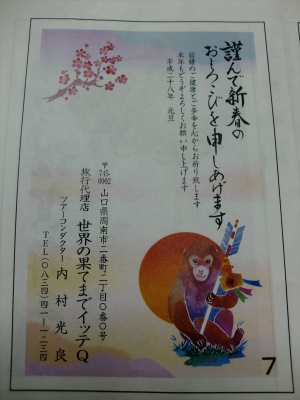 謹んで新春の
およろこびを申しあげます
皆様のご健康とご多幸を心からお祈り致します
本年もどうぞよろしくお願い申し上げます
平成二十八年 元旦
〒745-0002 山口県周南市二番町二丁目〇番〇号
旅行代理店 世界の果てまでイッテQ
ツアーコンダクター 内村光良
TEL(〇八三四)四一-一二三四
7